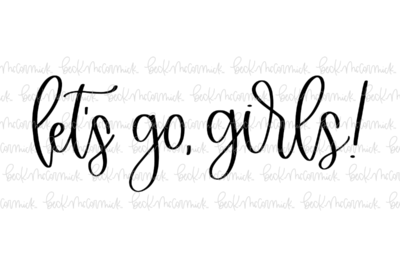 let's go, girls!